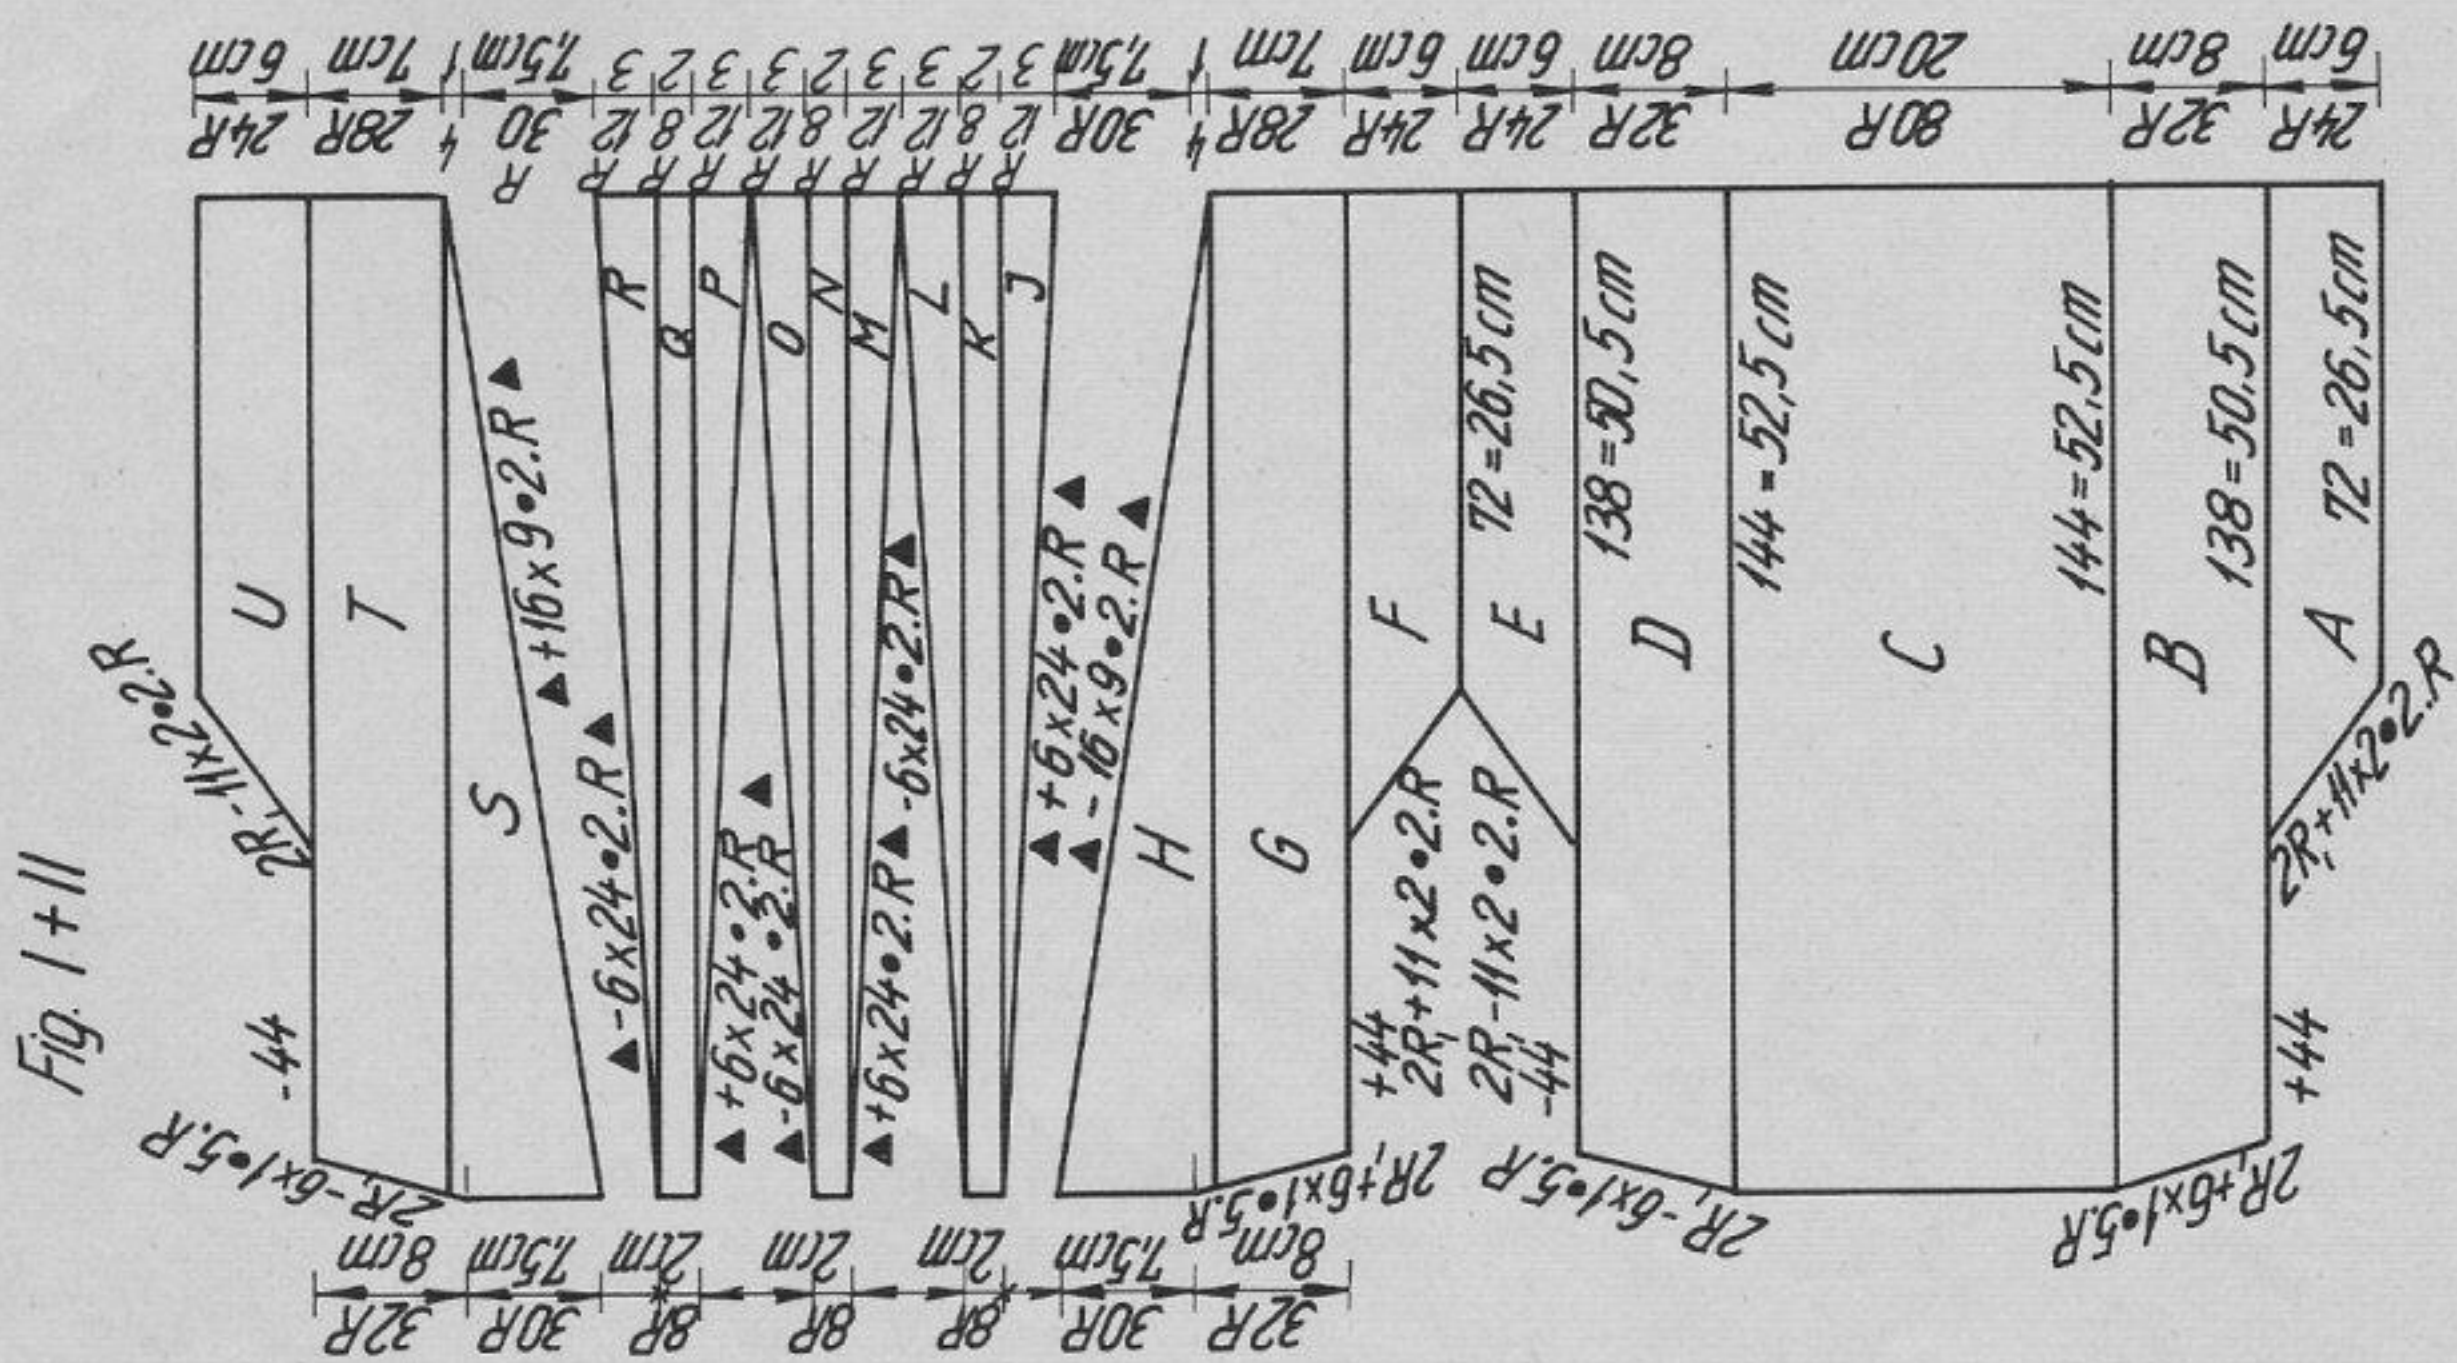 Fig. I+II
6cm 7cm 1 7,5cm 3 2 3 3 2 3 3 2 3 7,5cm 1 7cm 6cm 6cm 8cm 20cm 8cm 6cm
24R 28R 4 30 12 8 12 12 8 12 12 8 12 30R 4 28R 24R 24R 32R 80R 32R 24R
R R R R R R R R R R
U
T
S
R
Q
P
O
N
M
L
K
J
H
G
F
E
D
C
B
A
2R,-11x2•2.R
-44
2R,-6x1•5.R
▲+16x9•2.R▲
▲-6x24•2.R▲
▲+6x24•2.R
▲-6x24•2.R▲
▲+6x24•2.R▲
-6x24•2.R▲
▲+6x24•2.R▲
▲-16x9•2.R▲
+44
2R,+11x2•2.R
2R,-11x2•2.R
-44
72=26,5cm
138=50,5cm
144=52,5cm
144=52,5cm
138=50,5cm
72=26,5cm
2R,+11x2•2.R
+44
2R,+6x1•5.R
2R,-6x1•5.R
2R,+6x1•5.R
8cm 7,5cm 2cm 2cm 2cm 7,5cm 8cm
32R 30R 8R 8R 8R 30R 32R